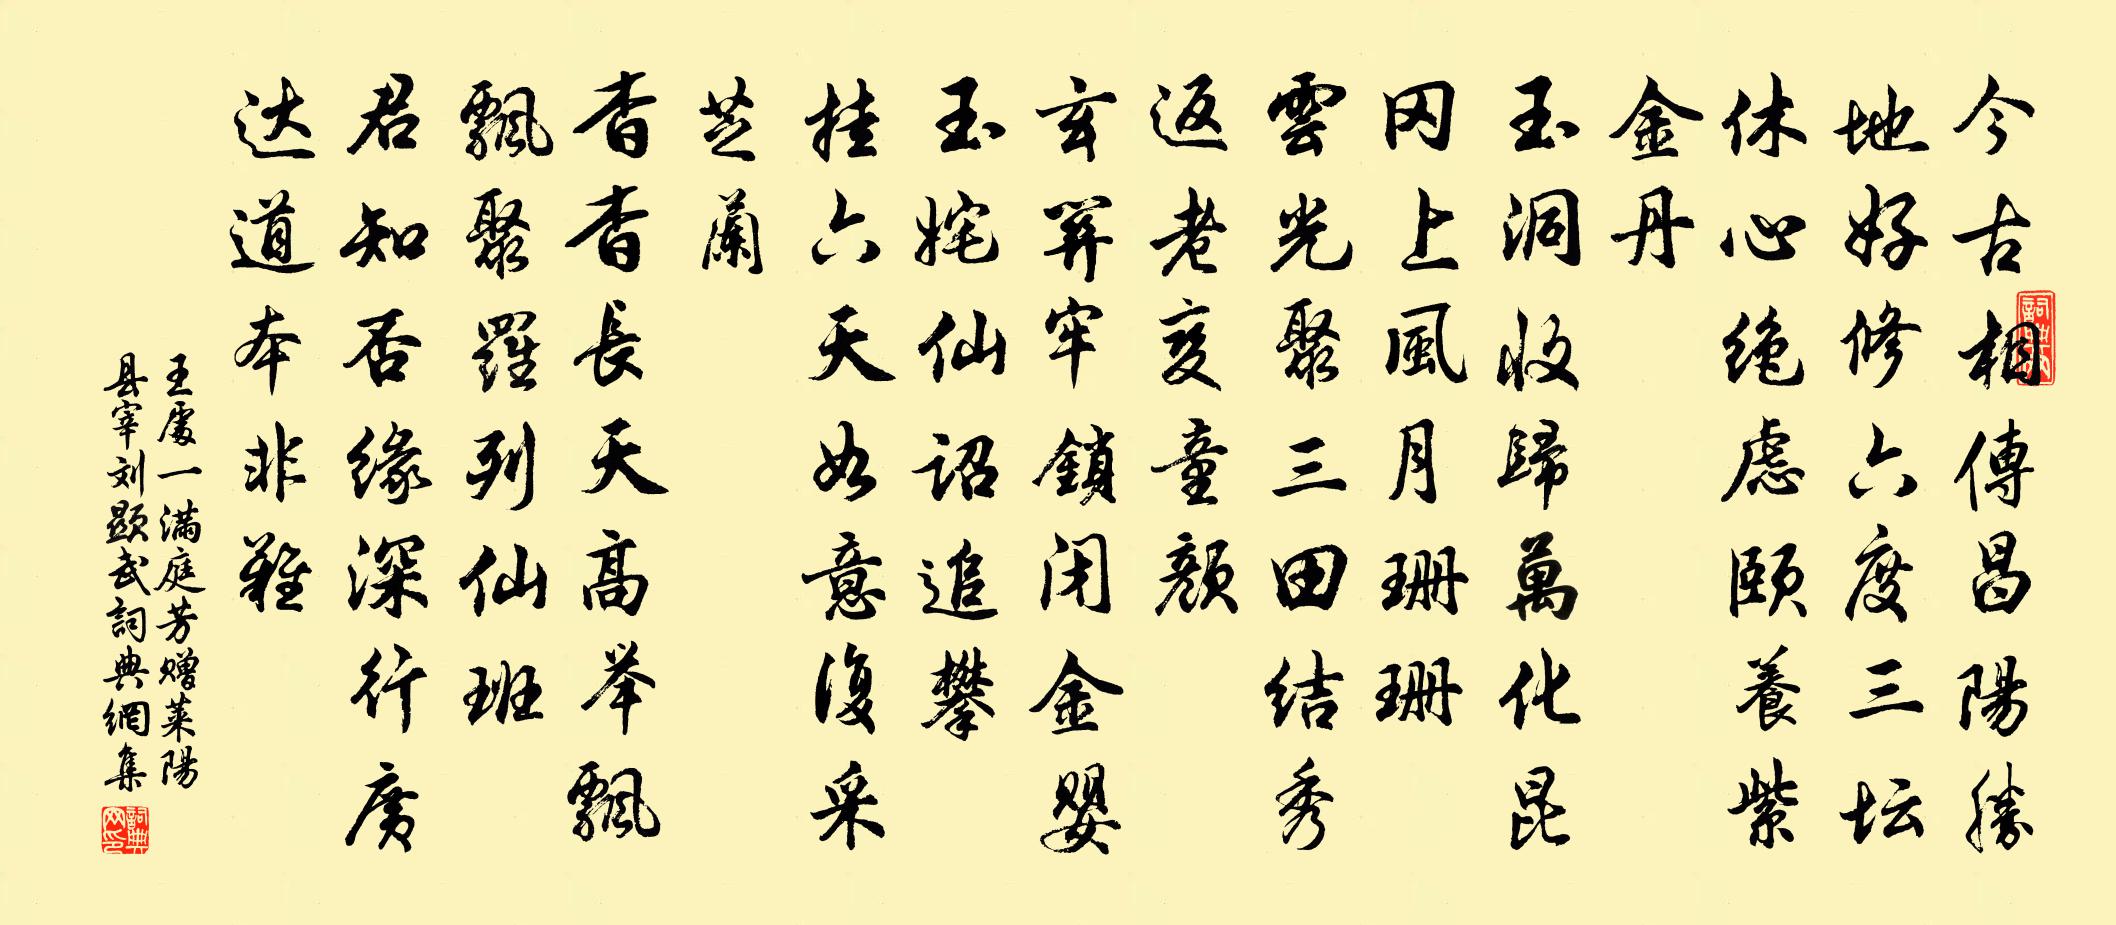 今古相傳昌陽勝
地好修六度三坛
休心绝虑颐養紫
金丹
玉洞收歸萬化昆
冈上風月珊珊
雲光聚三田结秀
返老变童颜
玄関牢鎖闭金嬰
玉姹仙诏追攀
挂六天如意復采
芝蘭
杳杳長天高举飄
飄聚羅列仙班
君知否缘深行广
达道本非難
王處一满庭芳赠莱陽
县宰刘显武詞典網集
詞典网印